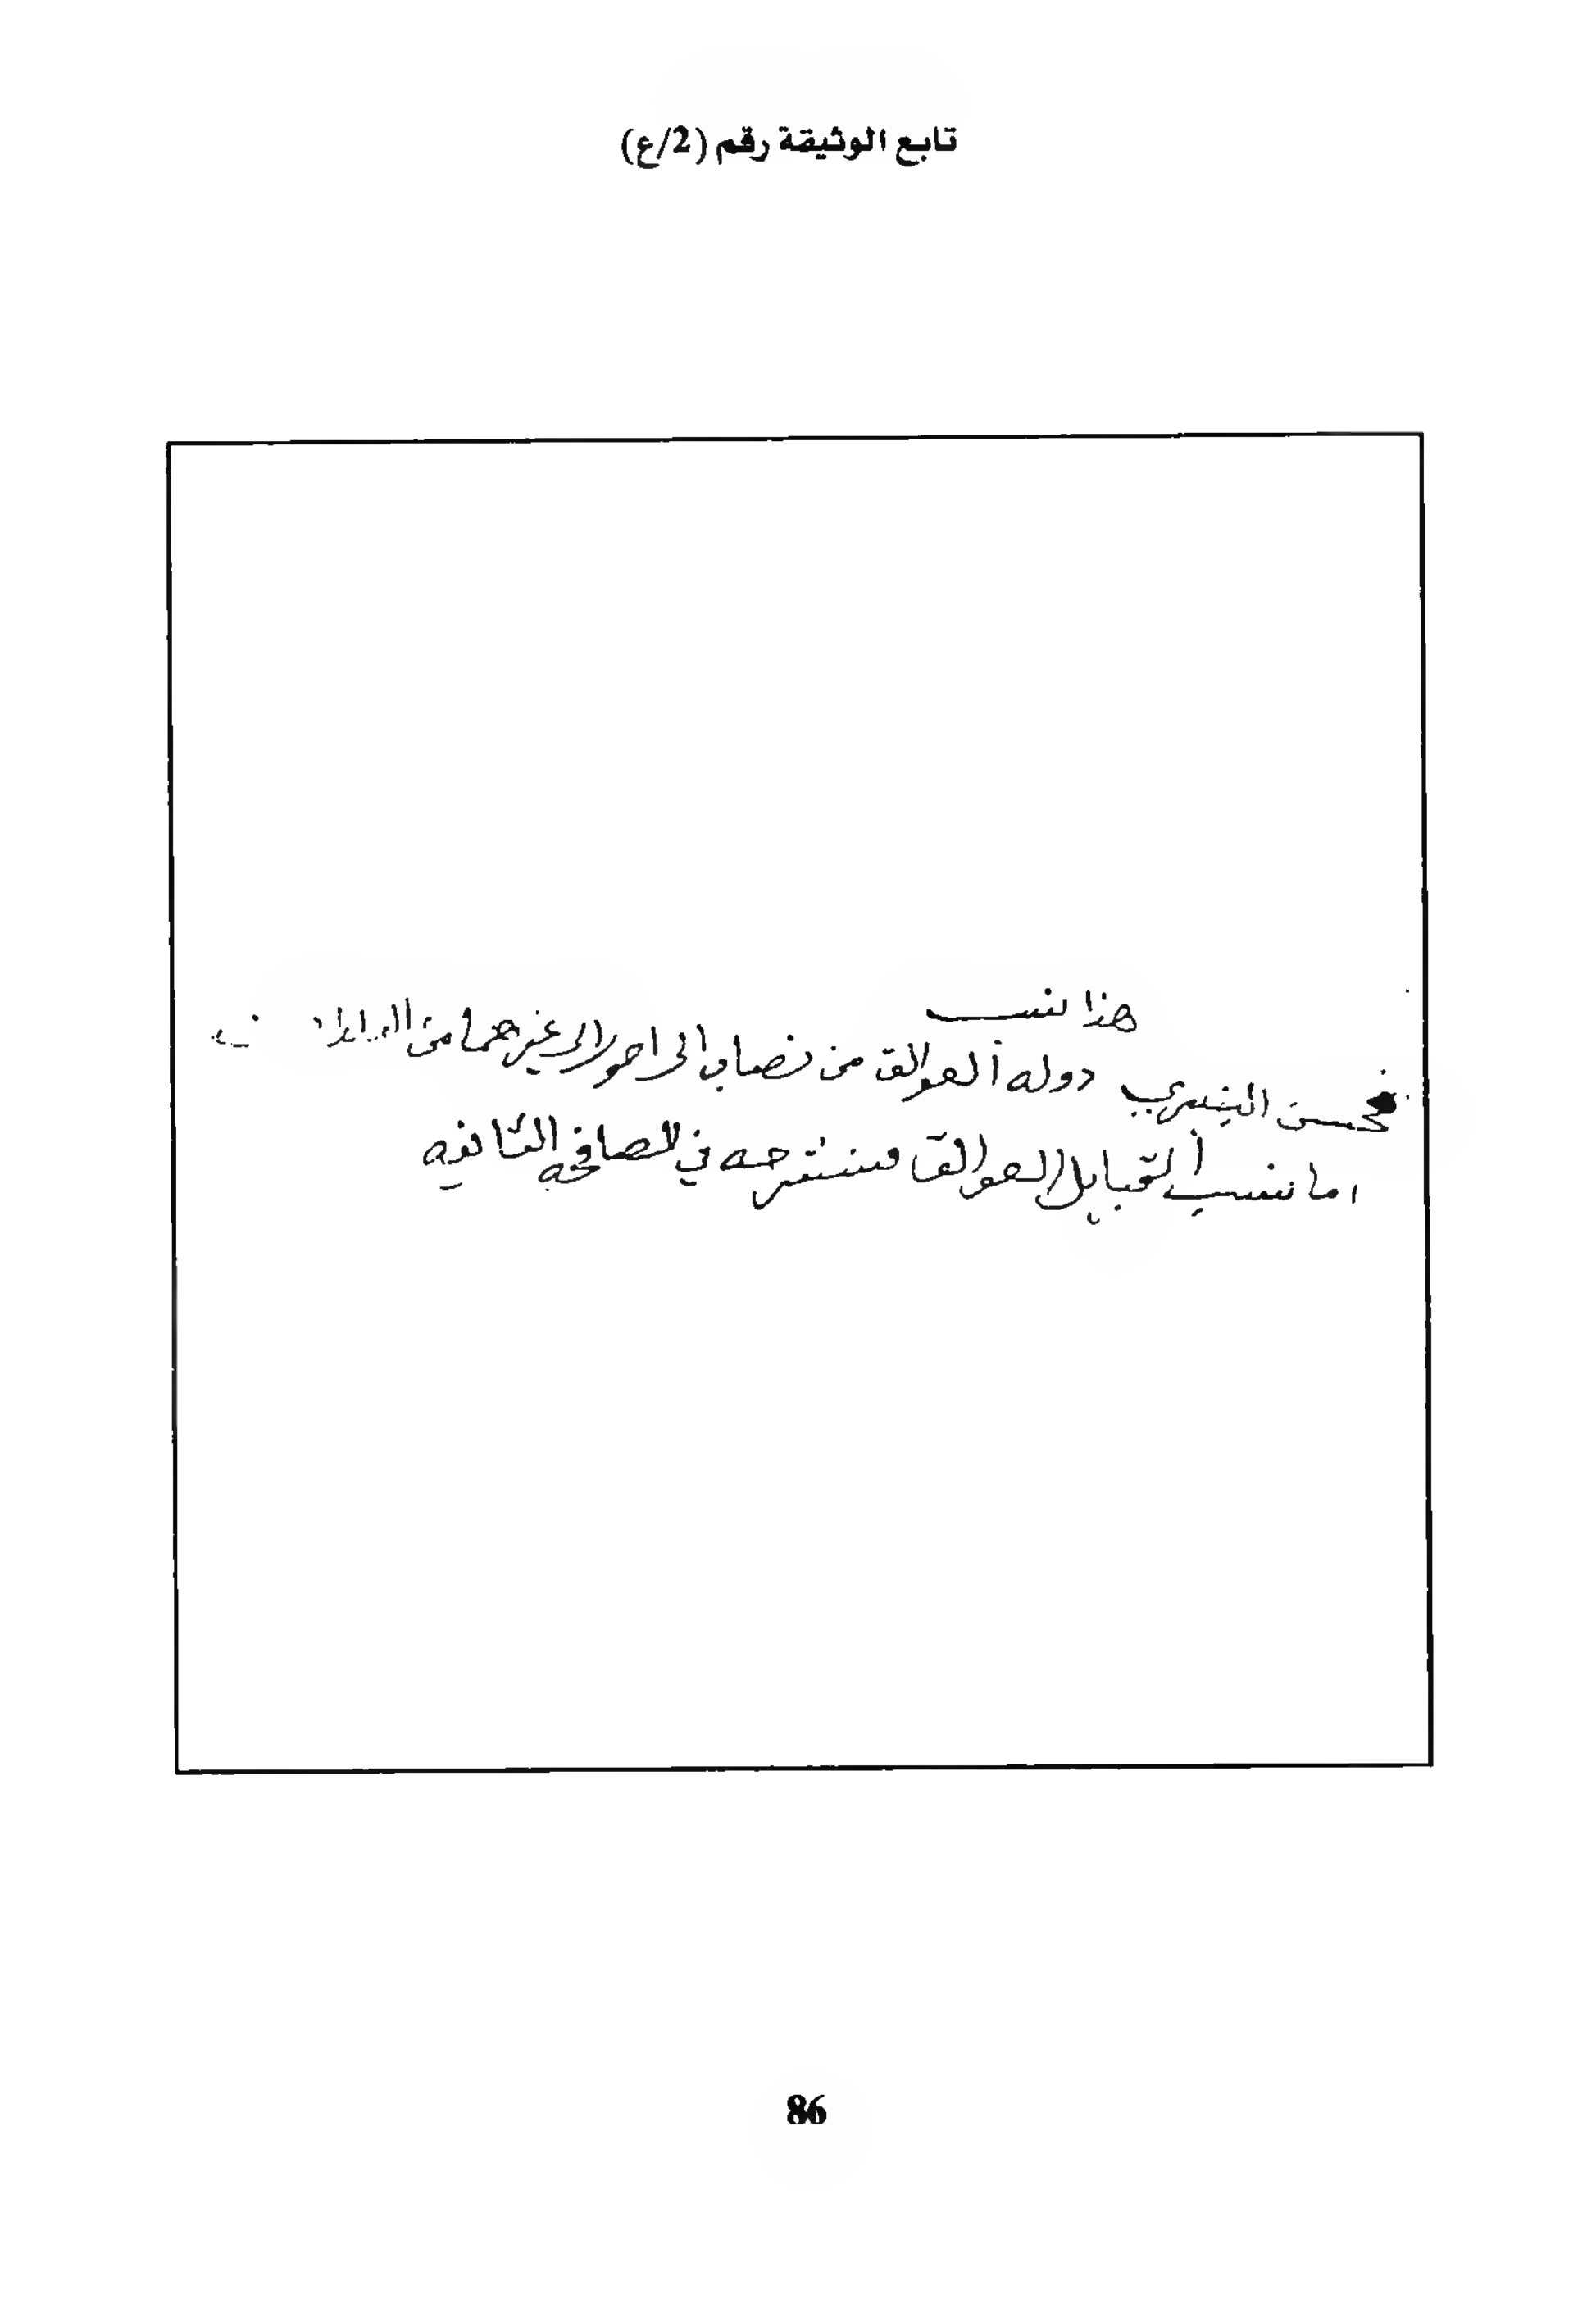 تابع الوثيقة رقم (2/ع)
هذا نسب
محسن دوله العوالق من نصاب الى احور الى غيرهما من
اما نسب القبايل العوالق فسنشرحه في الصافحه الثانيه
86